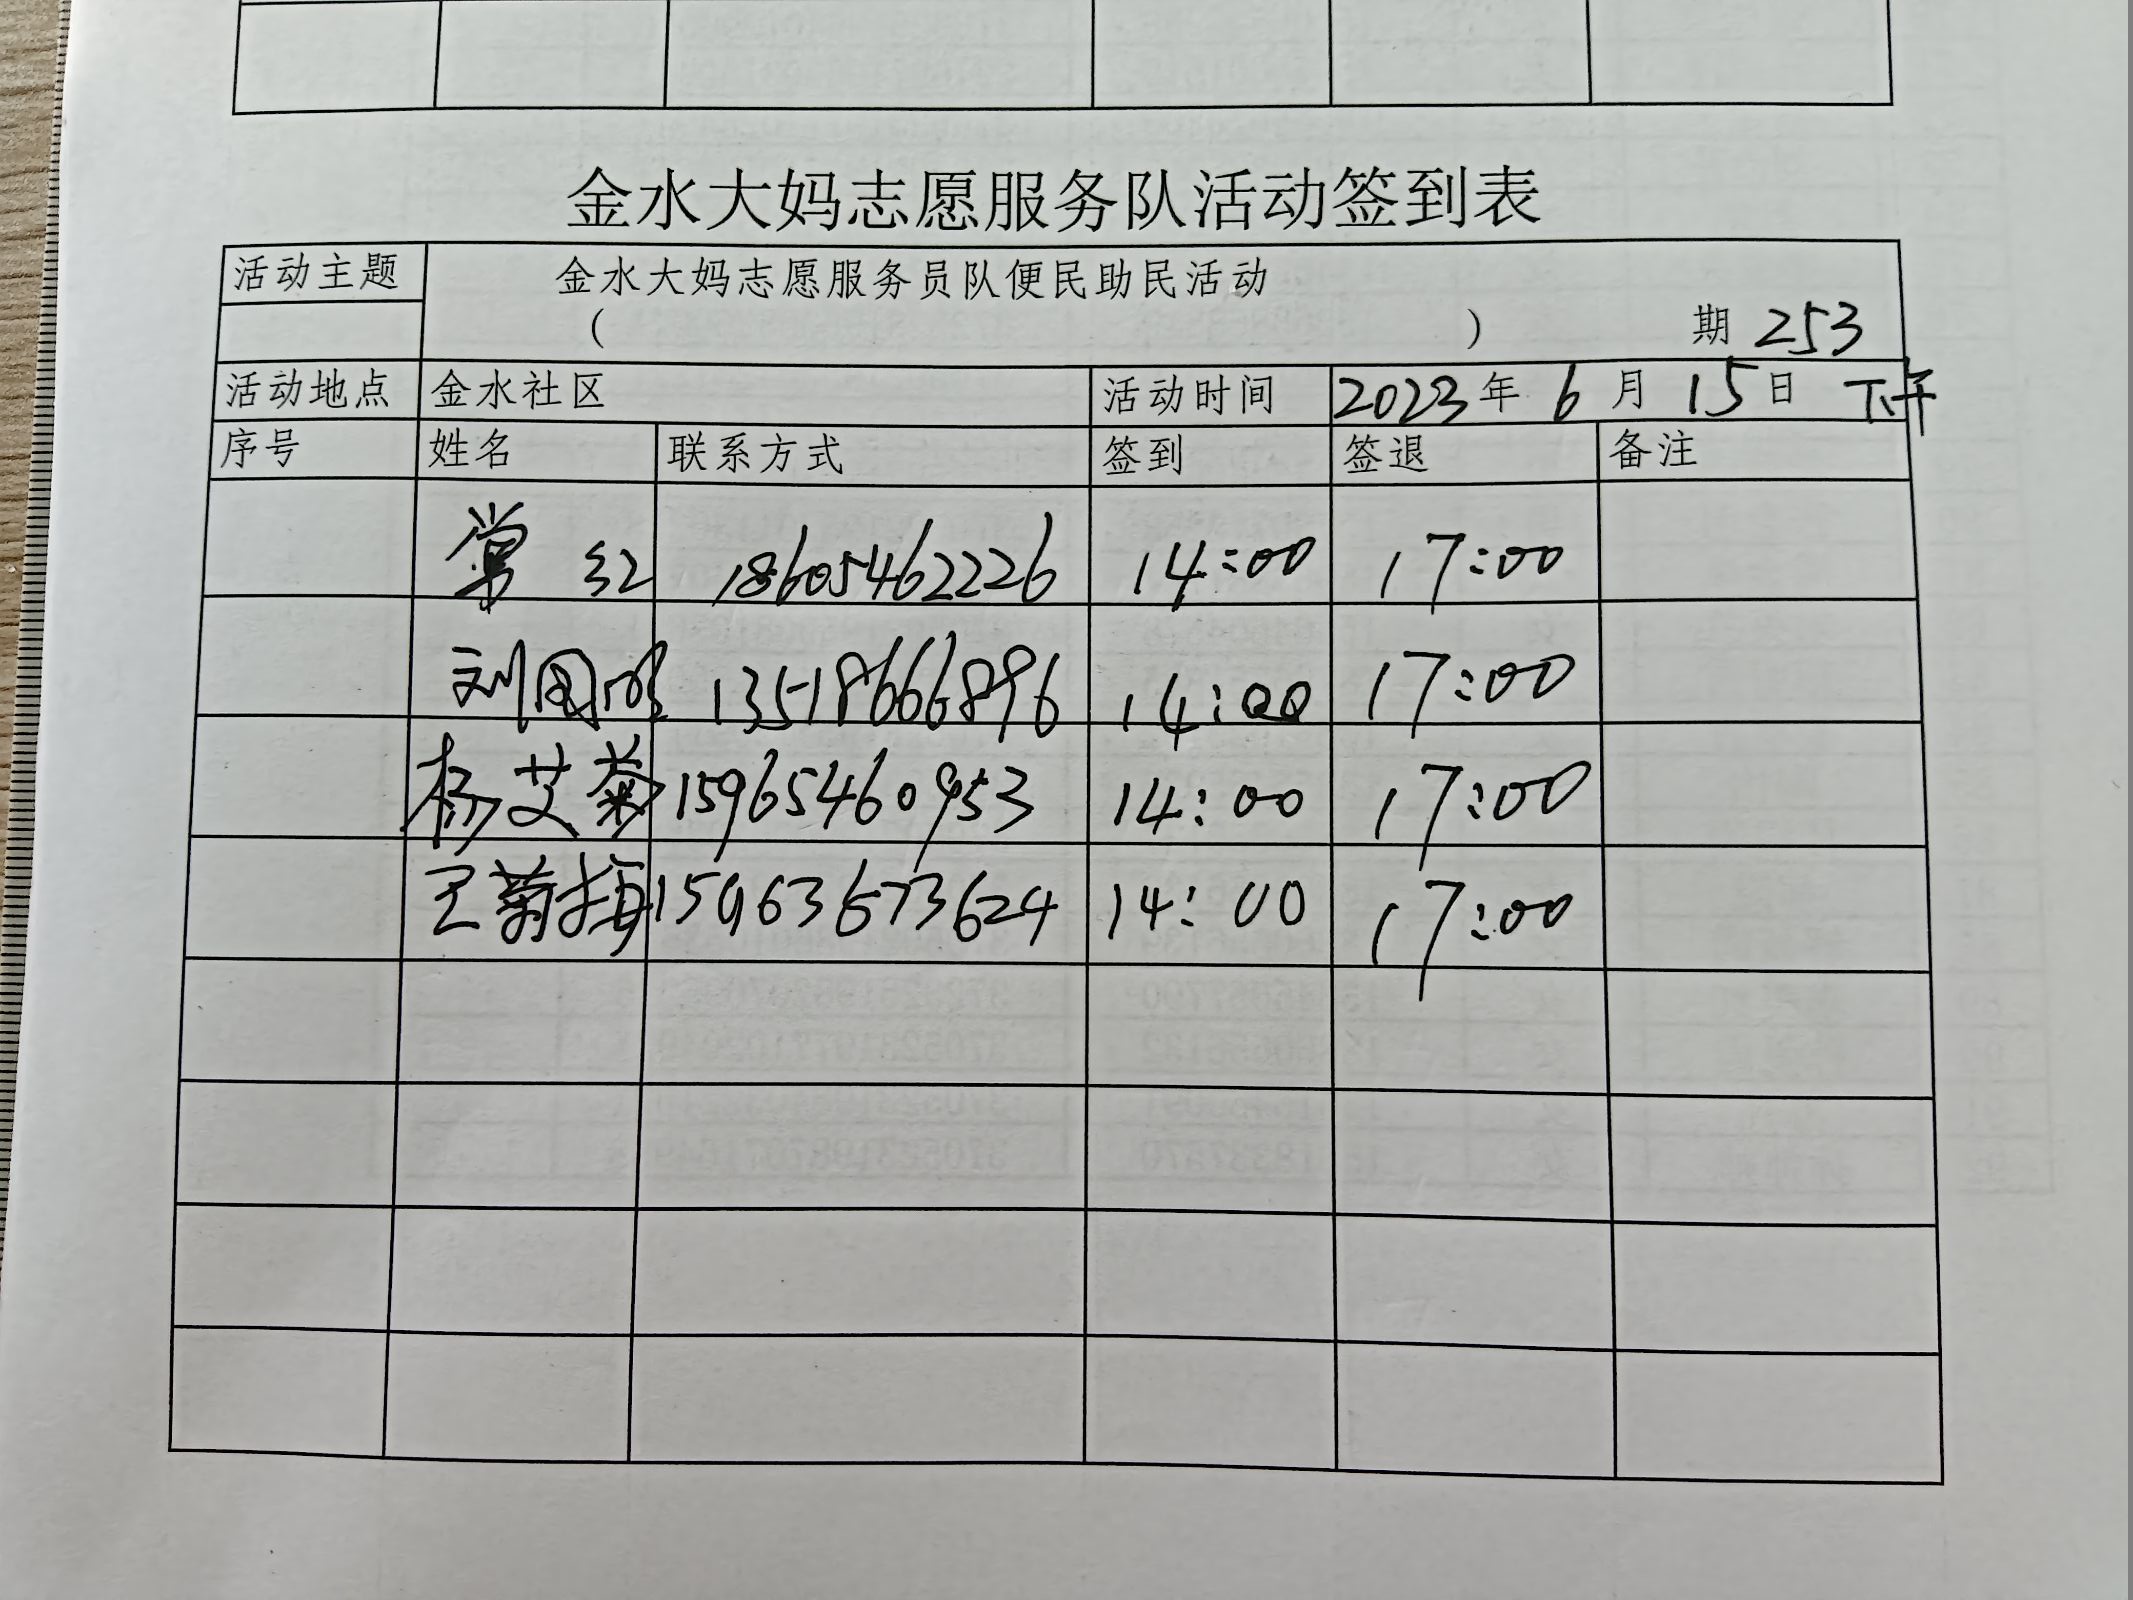 金水大妈志愿服务队活动签到表
活动主题 金水大妈志愿服务员队便民助民活动
( ) 期 253
活动地点 金水社区 活动时间 2023年 6月 15日 下午
序号 姓名 联系方式 签到 签退 备注
常红 18605462226 14:00 17:00
刘国明 13518666896 14:00 17:00
杨艾菊 15965460953 14:00 17:00
王菊梅 15963673624 14:00 17:00